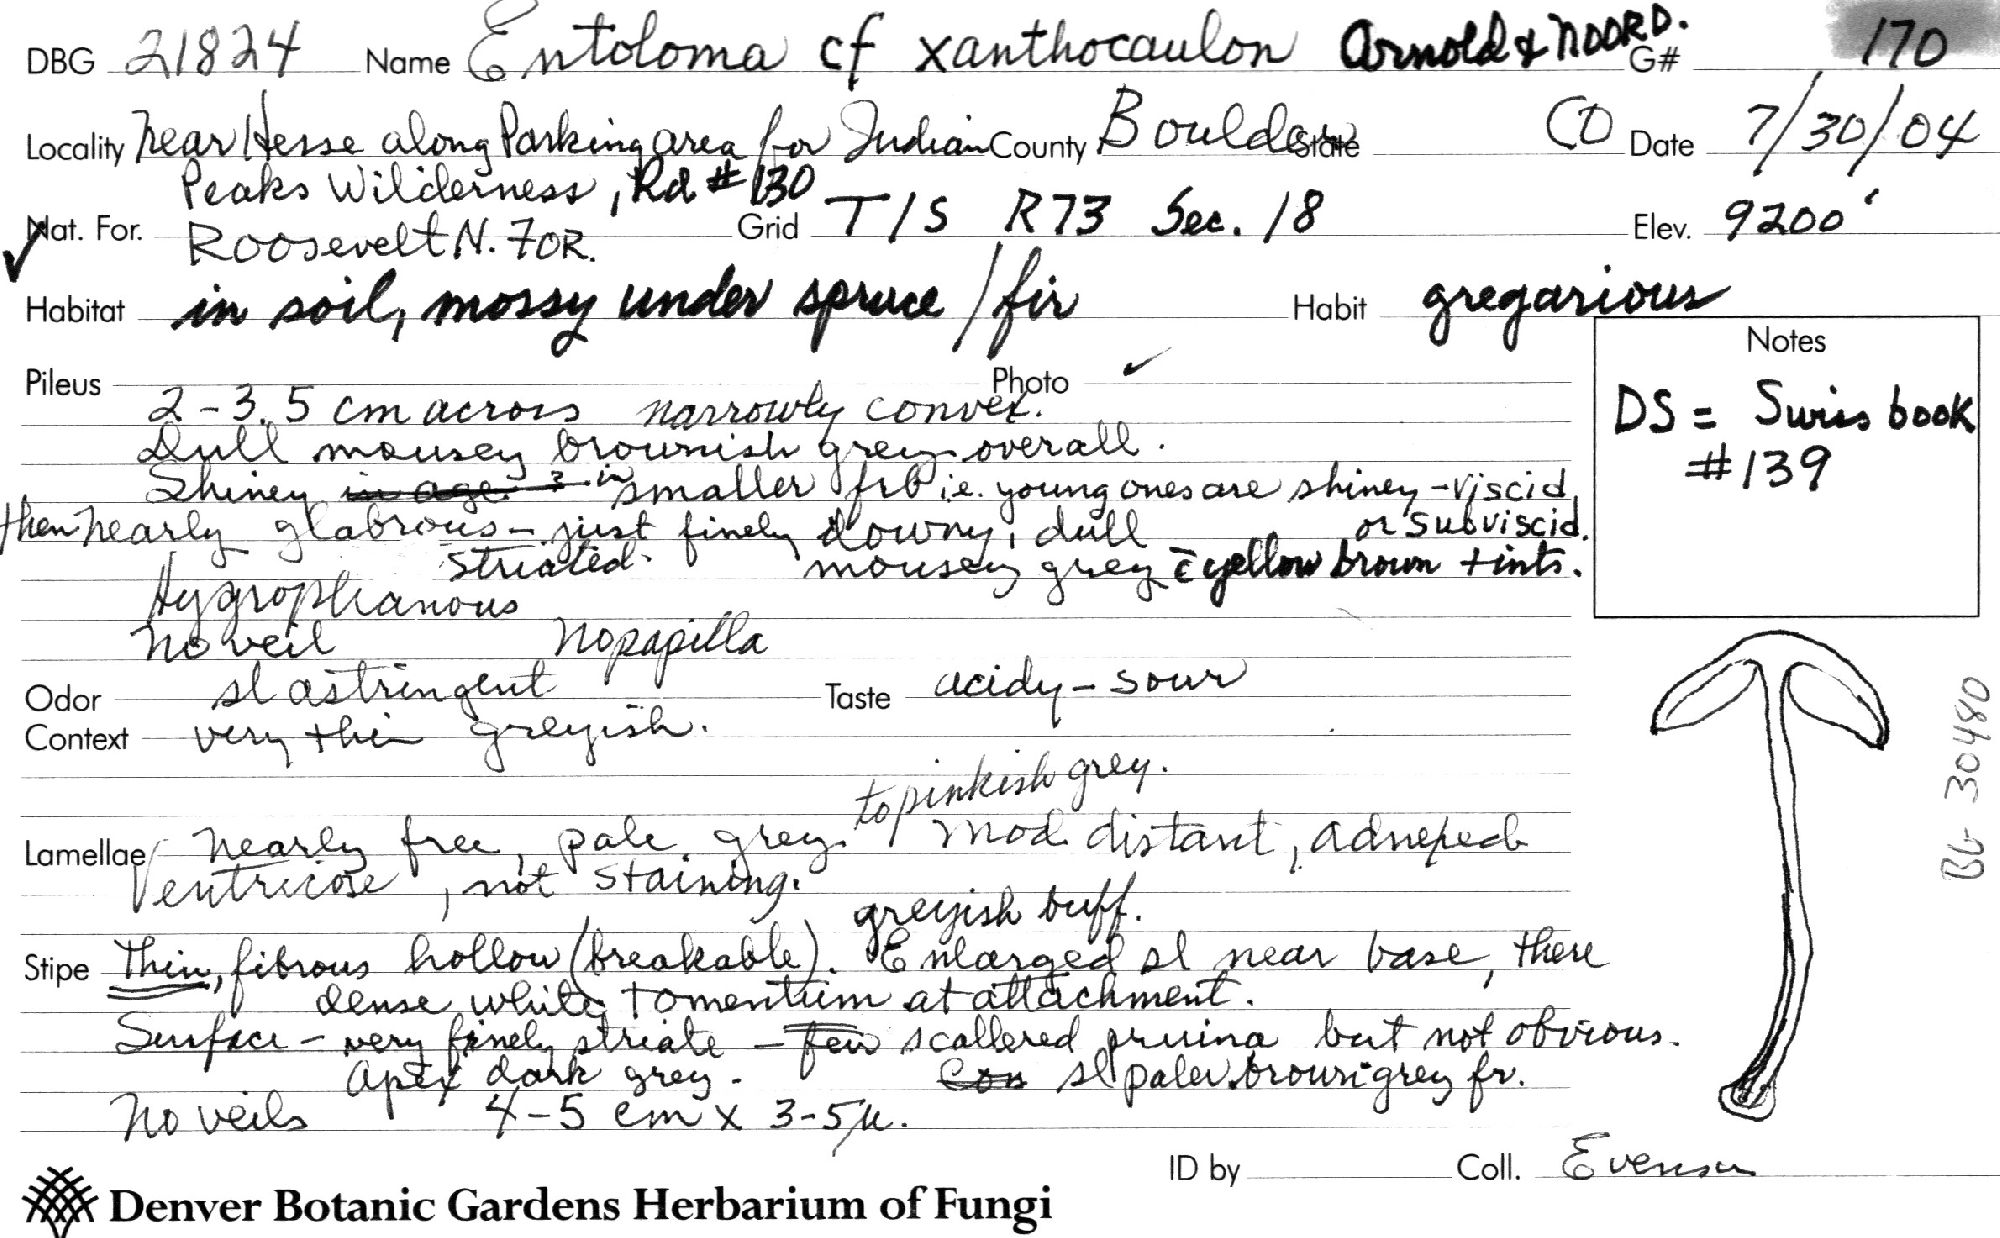 DBG 21824 Name Entoloma cf xanthocaulon Arnold & Noord. G# 170
Locality Near Hesse along Parking area for Indian County Boulder State CO Date 7/30/04
Peaks Wilderness, Rd # 130
Nat. For. Roosevelt N. For. Grid T1S R73 Sec. 18 Elev. 9200'
✓
Habitat in soil, mossy under spruce/fir Habit gregarious
Notes
DS = Swiss book
#139
Pileus Photo ✓
2-3.5 cm across narrowly convex.
Dull mousey brownish grey overall.
Shiney in age ? in smaller frb i.e. young ones are shiney-viscid
or subviscid.
then nearly glabrous - just finely downy, dull
striated. mousey grey c̄ yellow brown tints.
Hygrophanous
No veil No papilla
Odor sl astringent Taste acidy-sour
Context very thin greyish.
to pinkish grey.
Lamellae nearly free, pale grey mod distant, adnexed
Ventricose, not staining.
greyish buff.
Stipe Thin, fibrous hollow (breakable). Enlarged sl near base, there
dense white tomentum at attachment.
Surface - very finely striate - few scattered pruina but not obvious.
Apex dark grey. sl paler brown grey fr.
No veils 4-5 cm x 3-5 µ.
BL 30480
ID by Coll. Evenson
Denver Botanic Gardens Herbarium of Fungi